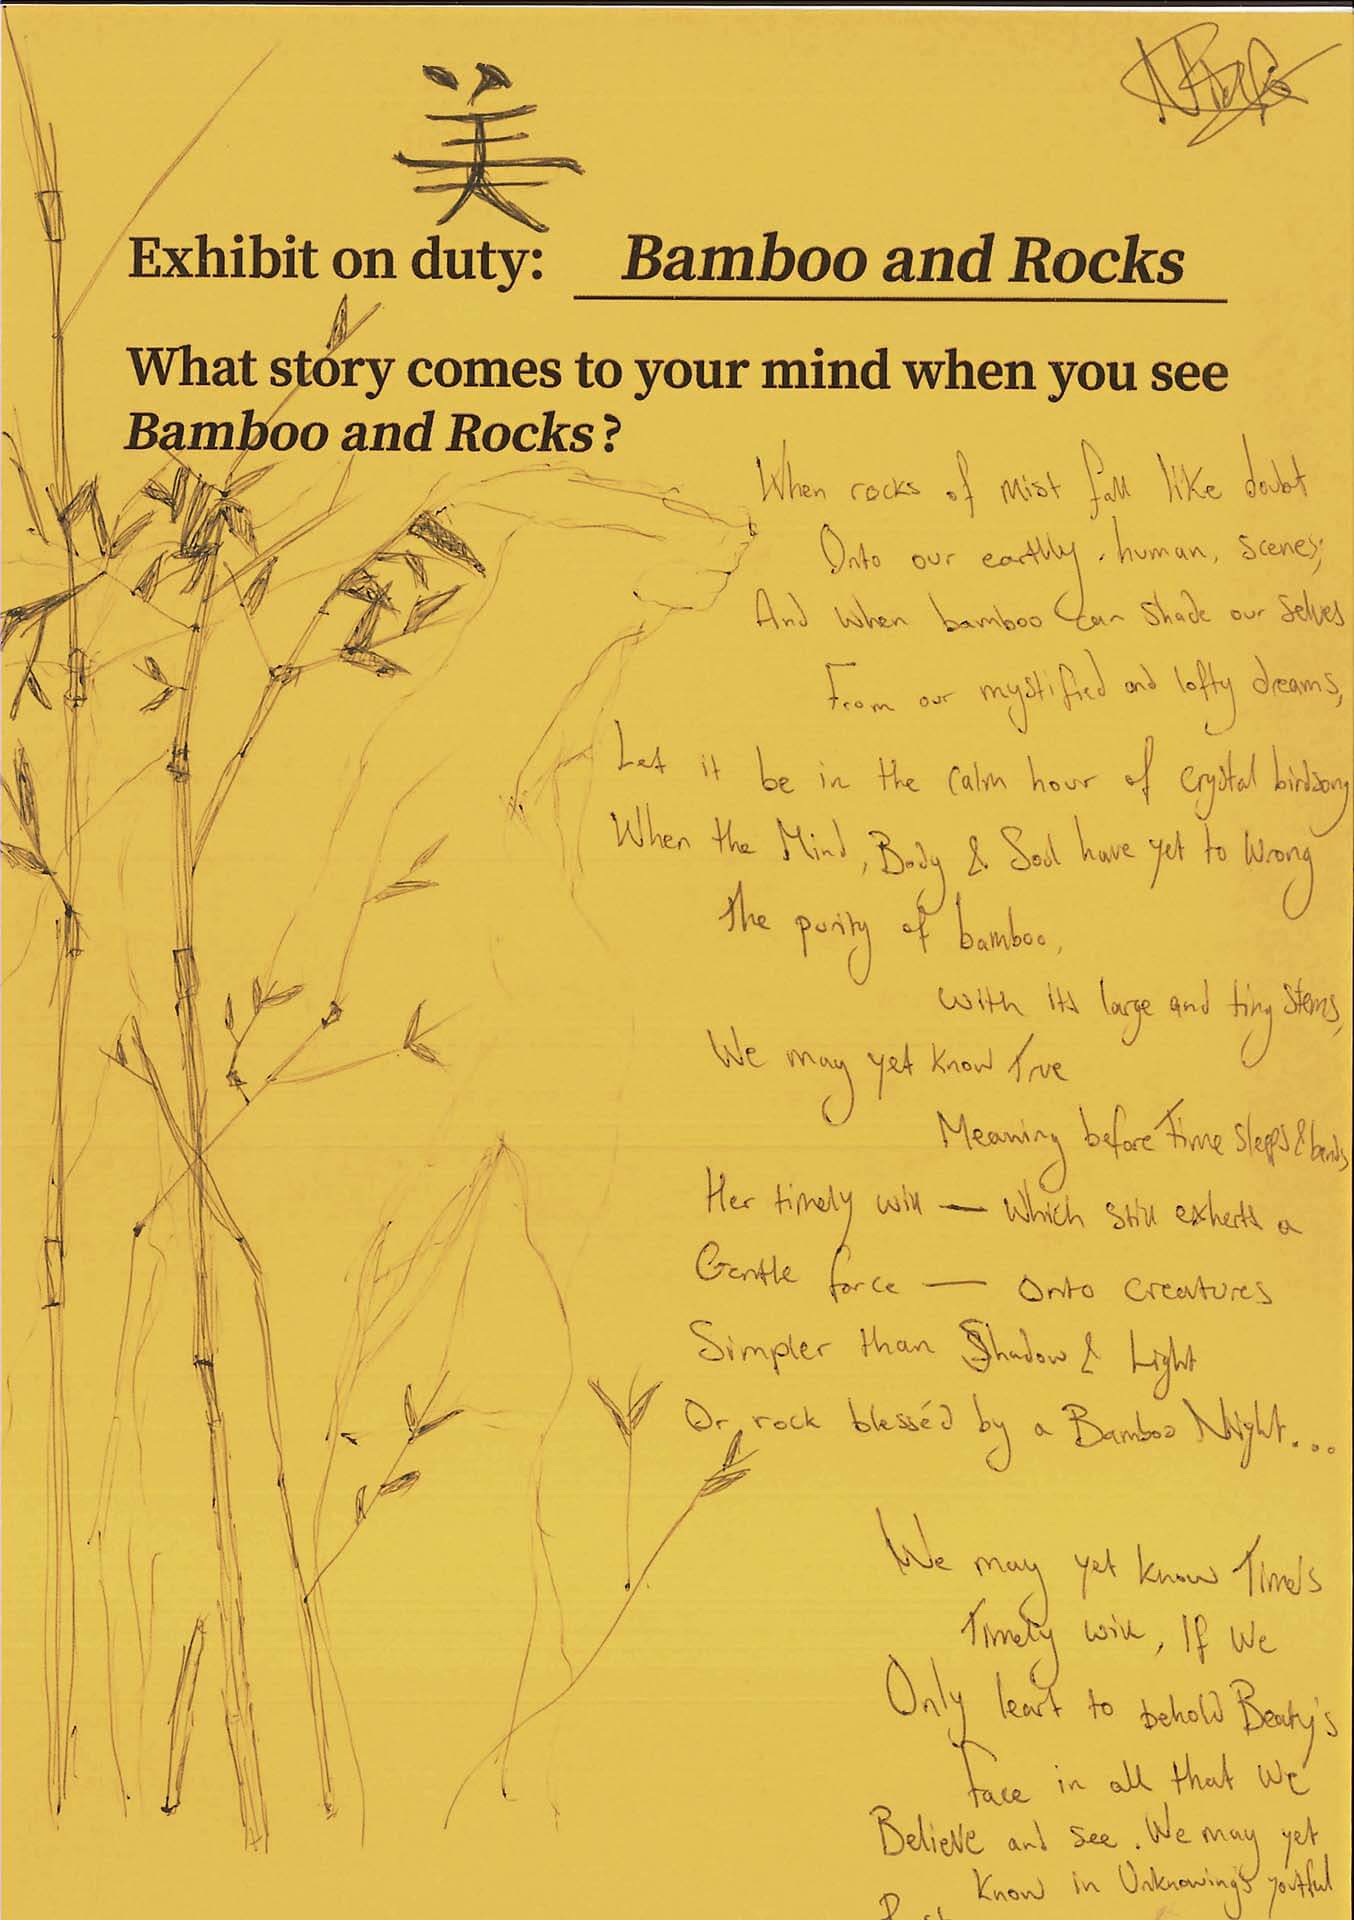 美
Exhibit on duty: Bamboo and Rocks
What story comes to your mind when you see
Bamboo and Rocks?
When rocks of mist fall like doubt
Onto our earthly, human, scenes;
And when bamboo can shade our selves
From our mystified and lofty dreams,
Let it be in the calm hour of crystal birdsong
When the Mind, Body & Soul have yet to wrong
The purity of bamboo,
with its large and tiny stems,
We may yet know True
Meaning before Time sleeps & bends
Her timely will — which still exherts a
Gentle force — onto creatures
Simpler than Shadow & Light
Or rock blesséd by a Bamboo Night...
We may yet know Time's
Timely will, If we
Only leart to behold Beaty's
Face in all that we
Believe and see. We may yet
Know in Unknowing's youtful